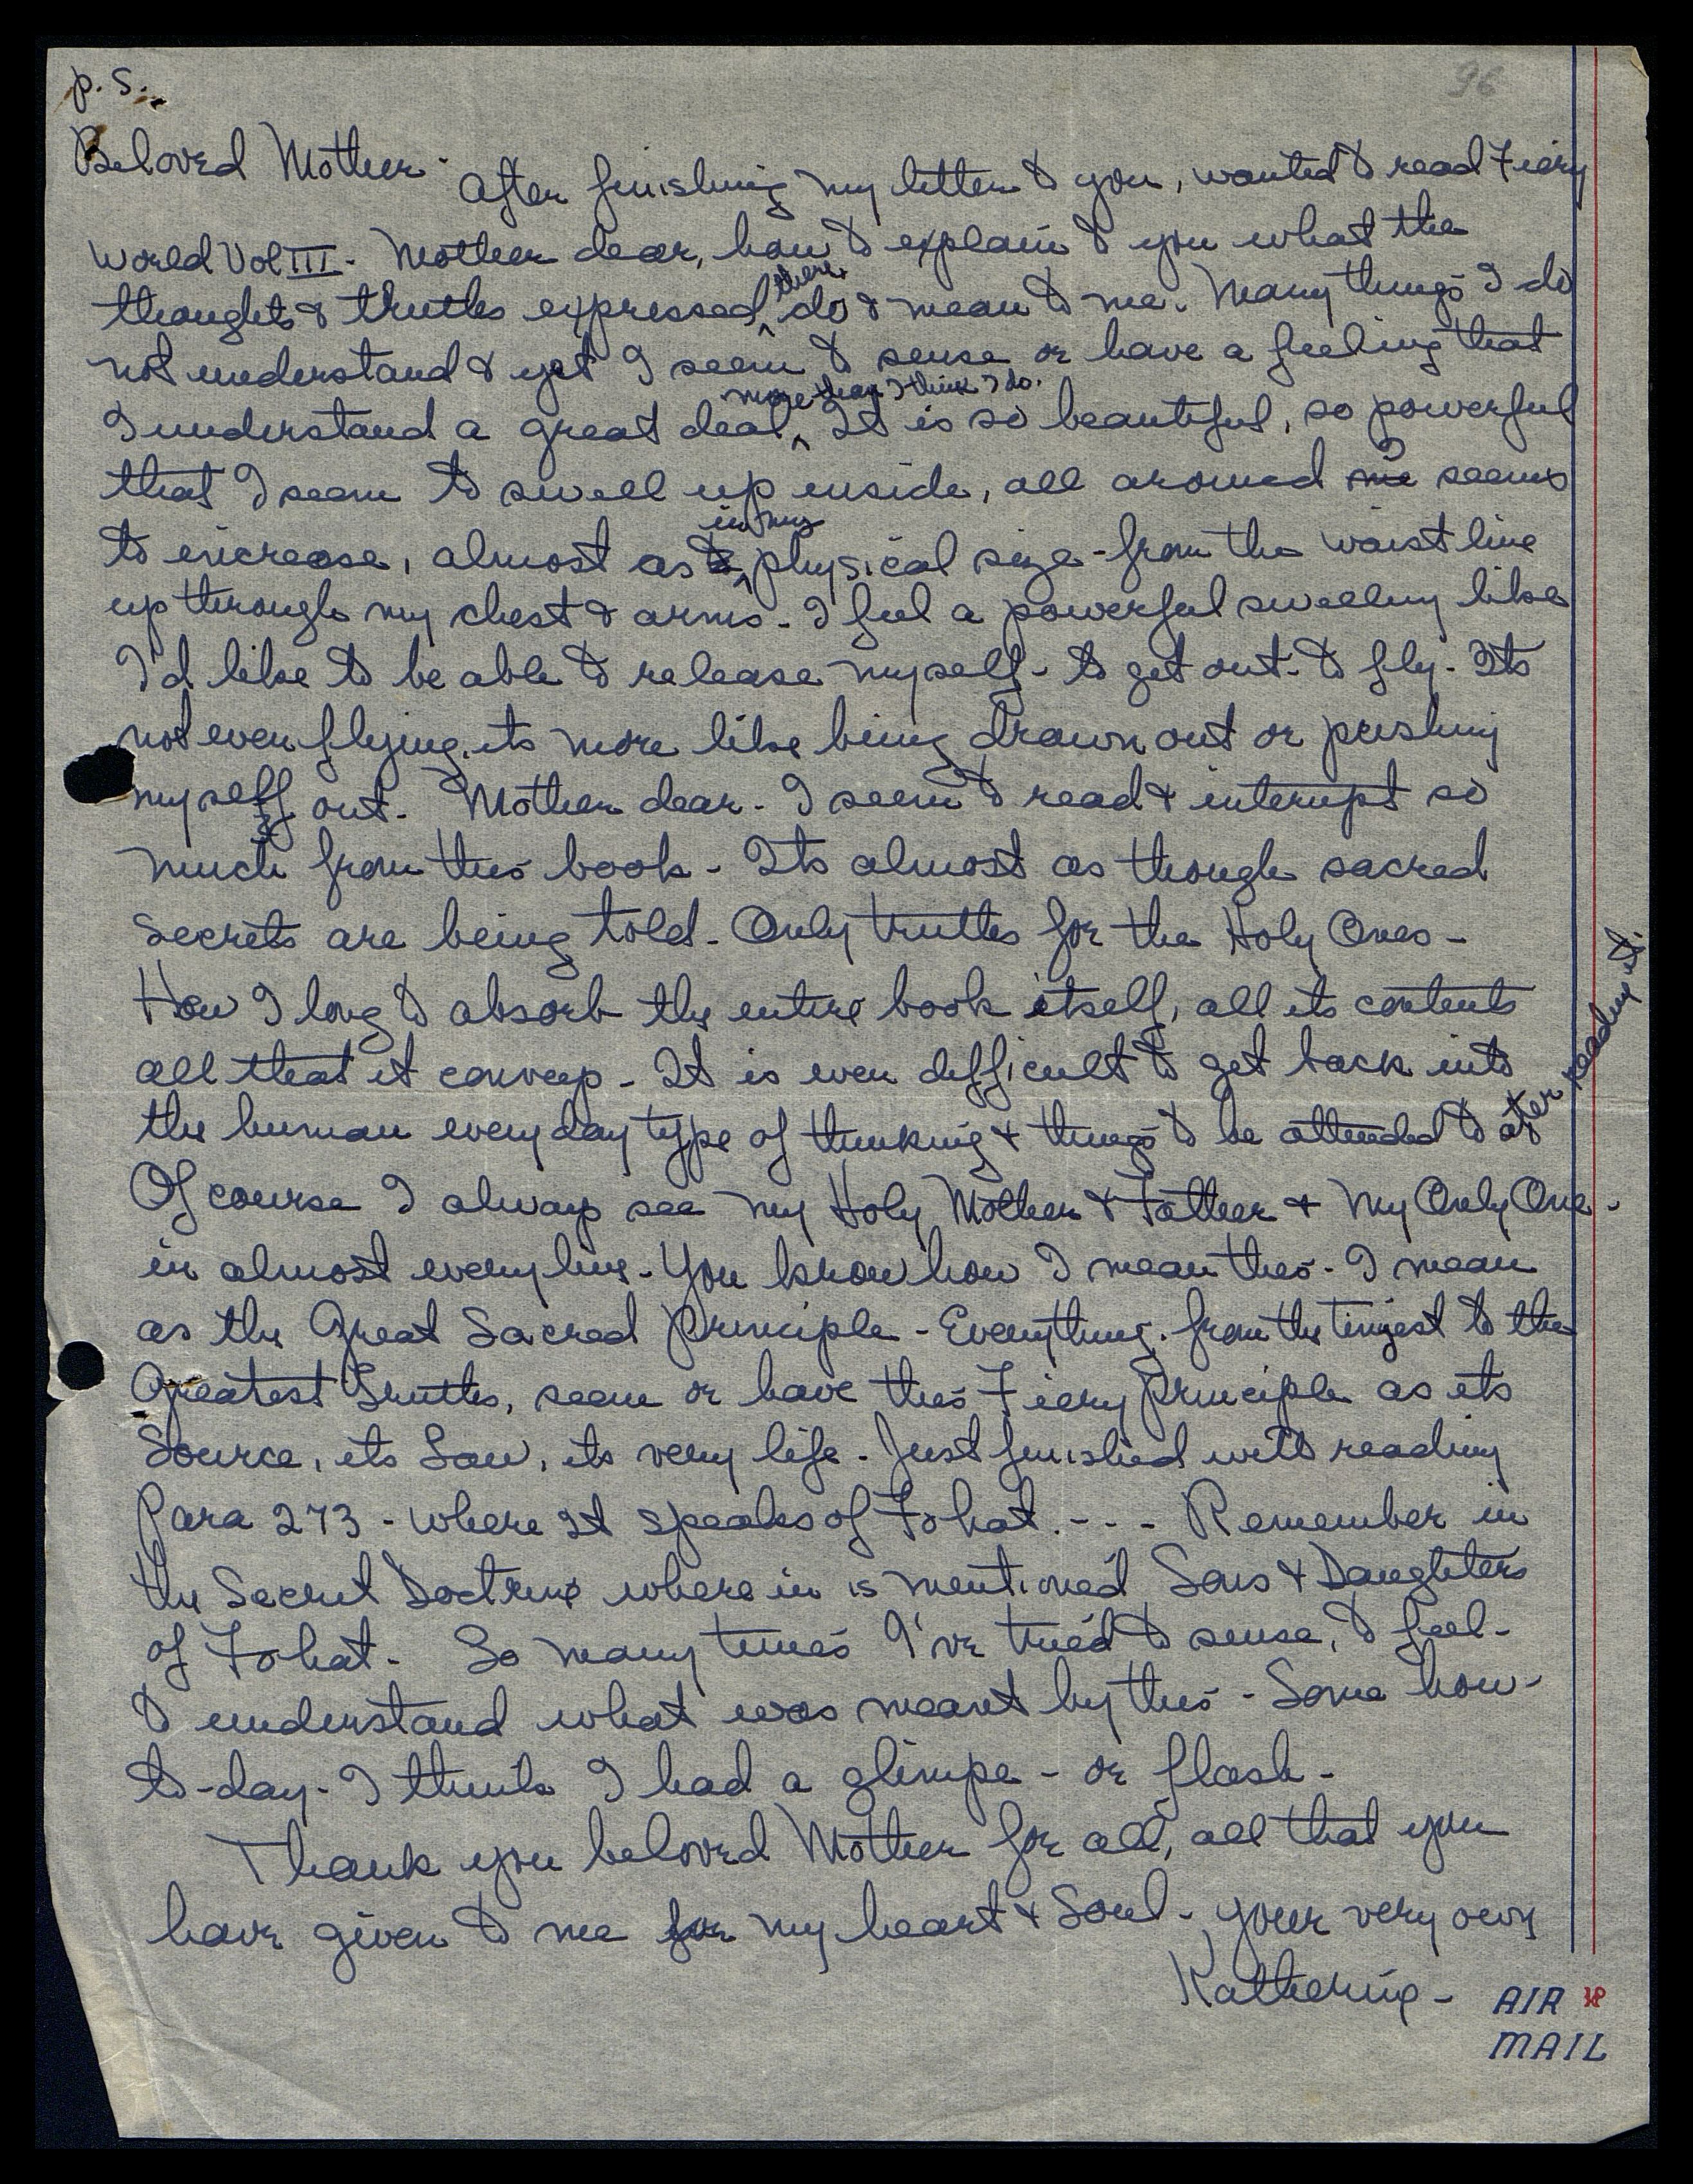 p. s.
96
Beloved Mother - After finishing my letter to you, wanted to read Fiery
World Vol III - Mother dear, how to explain to you what the
thoughts & truths expressed there, do & mean to me. Many things I do
not understand & yet I seem to sense or have a feeling that
I understand a great deal more than I think I do. It is so beautiful, so powerful
that I seem to swell up inside, all around me seems
to increase, almost as in my physical size - from the waist line
up through my chest & arms - I feel a powerful swelling like
I'd like to be able to release myself - to get out - to fly - Its
not even flying, its more like being drawn out or pushing
myself out - Mother dear - I seem to read & interupt so
much from this book - Its almost as though sacred
secrets are being told - Only truths for the Holy Ones -
How I long to absorb the entire book itself, all its contents
all that it conveys - It is even difficult to get back into
the human everyday type of thinking & things to be attended to after reading it.
Of course I always see my Holy Mother & Father & My Only One -
in almost every line - You know how I mean this - I mean
as the Great Sacred Principle - Everything, from the tiniest to the
Greatest Truths, seem or have this Fiery Principle as its
Source, its Law, its very life - Just finished with reading
Para 273 - where it speaks of Fohat. - - - Remember in
the Secret Doctrine where in is mentioned Sons & Daughters
of Fohat - So many times I've tried to sense, to feel -
to understand what was meant by this - Some how -
to-day - I think I had a glimpe - or flash -
Thank you beloved Mother for all, all that you
have given to me for my heart & Soul - your very own
Katherine -
AIR
MAIL